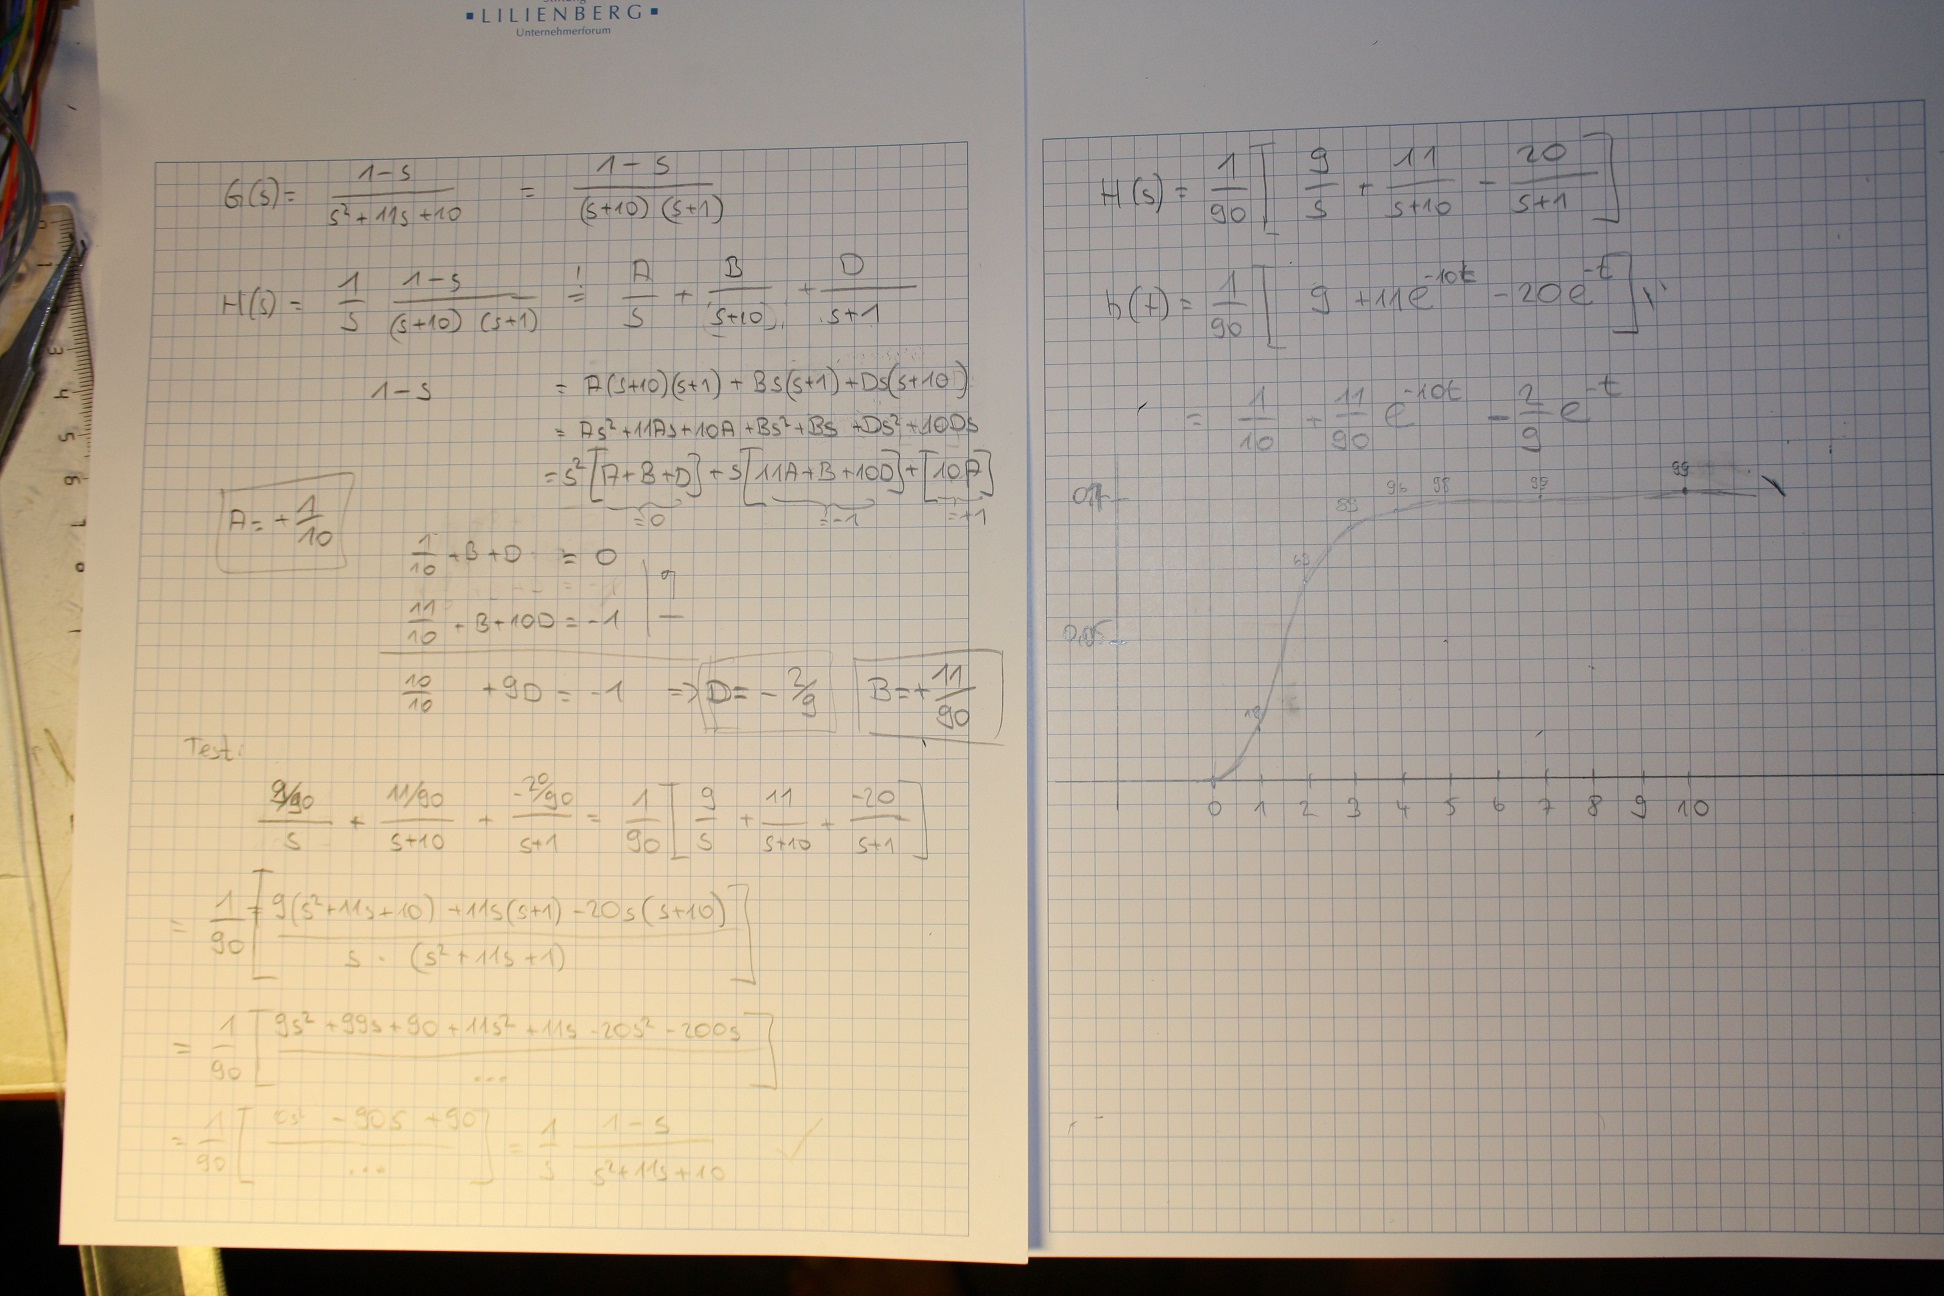 LILIENBERG
Unternehmerforum
G(s) = (1-s)/(s²+11s+10) = (1-s)/((s+10)(s+1))
H(s) = 1/s (1-s)/((s+10)(s+1)) =! A/s + B/(s+10) + D/(s+1)
1-s = A(s+10)(s+1) + Bs(s+1) + Ds(s+10)
= As² + 11As + 10A + Bs² + Bs + Ds² + 10Ds
= s² [A+B+D] + s [11A+B+10D] + [10A]
=0 =-1 =+1
A = + 1/10
1/10 + B + D = 0
11/10 + B + 10D = -1
10/10 + 9D = -1 => D = - 2/9 B = + 11/90
Test:
(9/90)/s + (11/90)/(s+10) + (-20/90)/(s+1) = 1/90 [ 9/s + 11/(s+10) + -20/(s+1) ]
= 1/90 [ (9(s²+11s+10) + 11s(s+1) - 20s(s+10)) / (s · (s²+11s+1)) ]
= 1/90 [ (9s² + 99s + 90 + 11s² + 11s - 20s² - 200s) / ... ]
= 1/90 [ (0s² - 90s + 90) / ... ] = 1/s (1-s)/(s²+11s+10) ✓
H(s) = 1/90 [ 9/s + 11/(s+10) - 20/(s+1) ]
h(t) = 1/90 [ 9 + 11e^-10t - 20e^-t ]
= 1/10 + 11/90 e^-10t - 2/9 e^-t
96 98 99
0 1 2 3 4 5 6 7 8 9 10
3
4
5
6
7